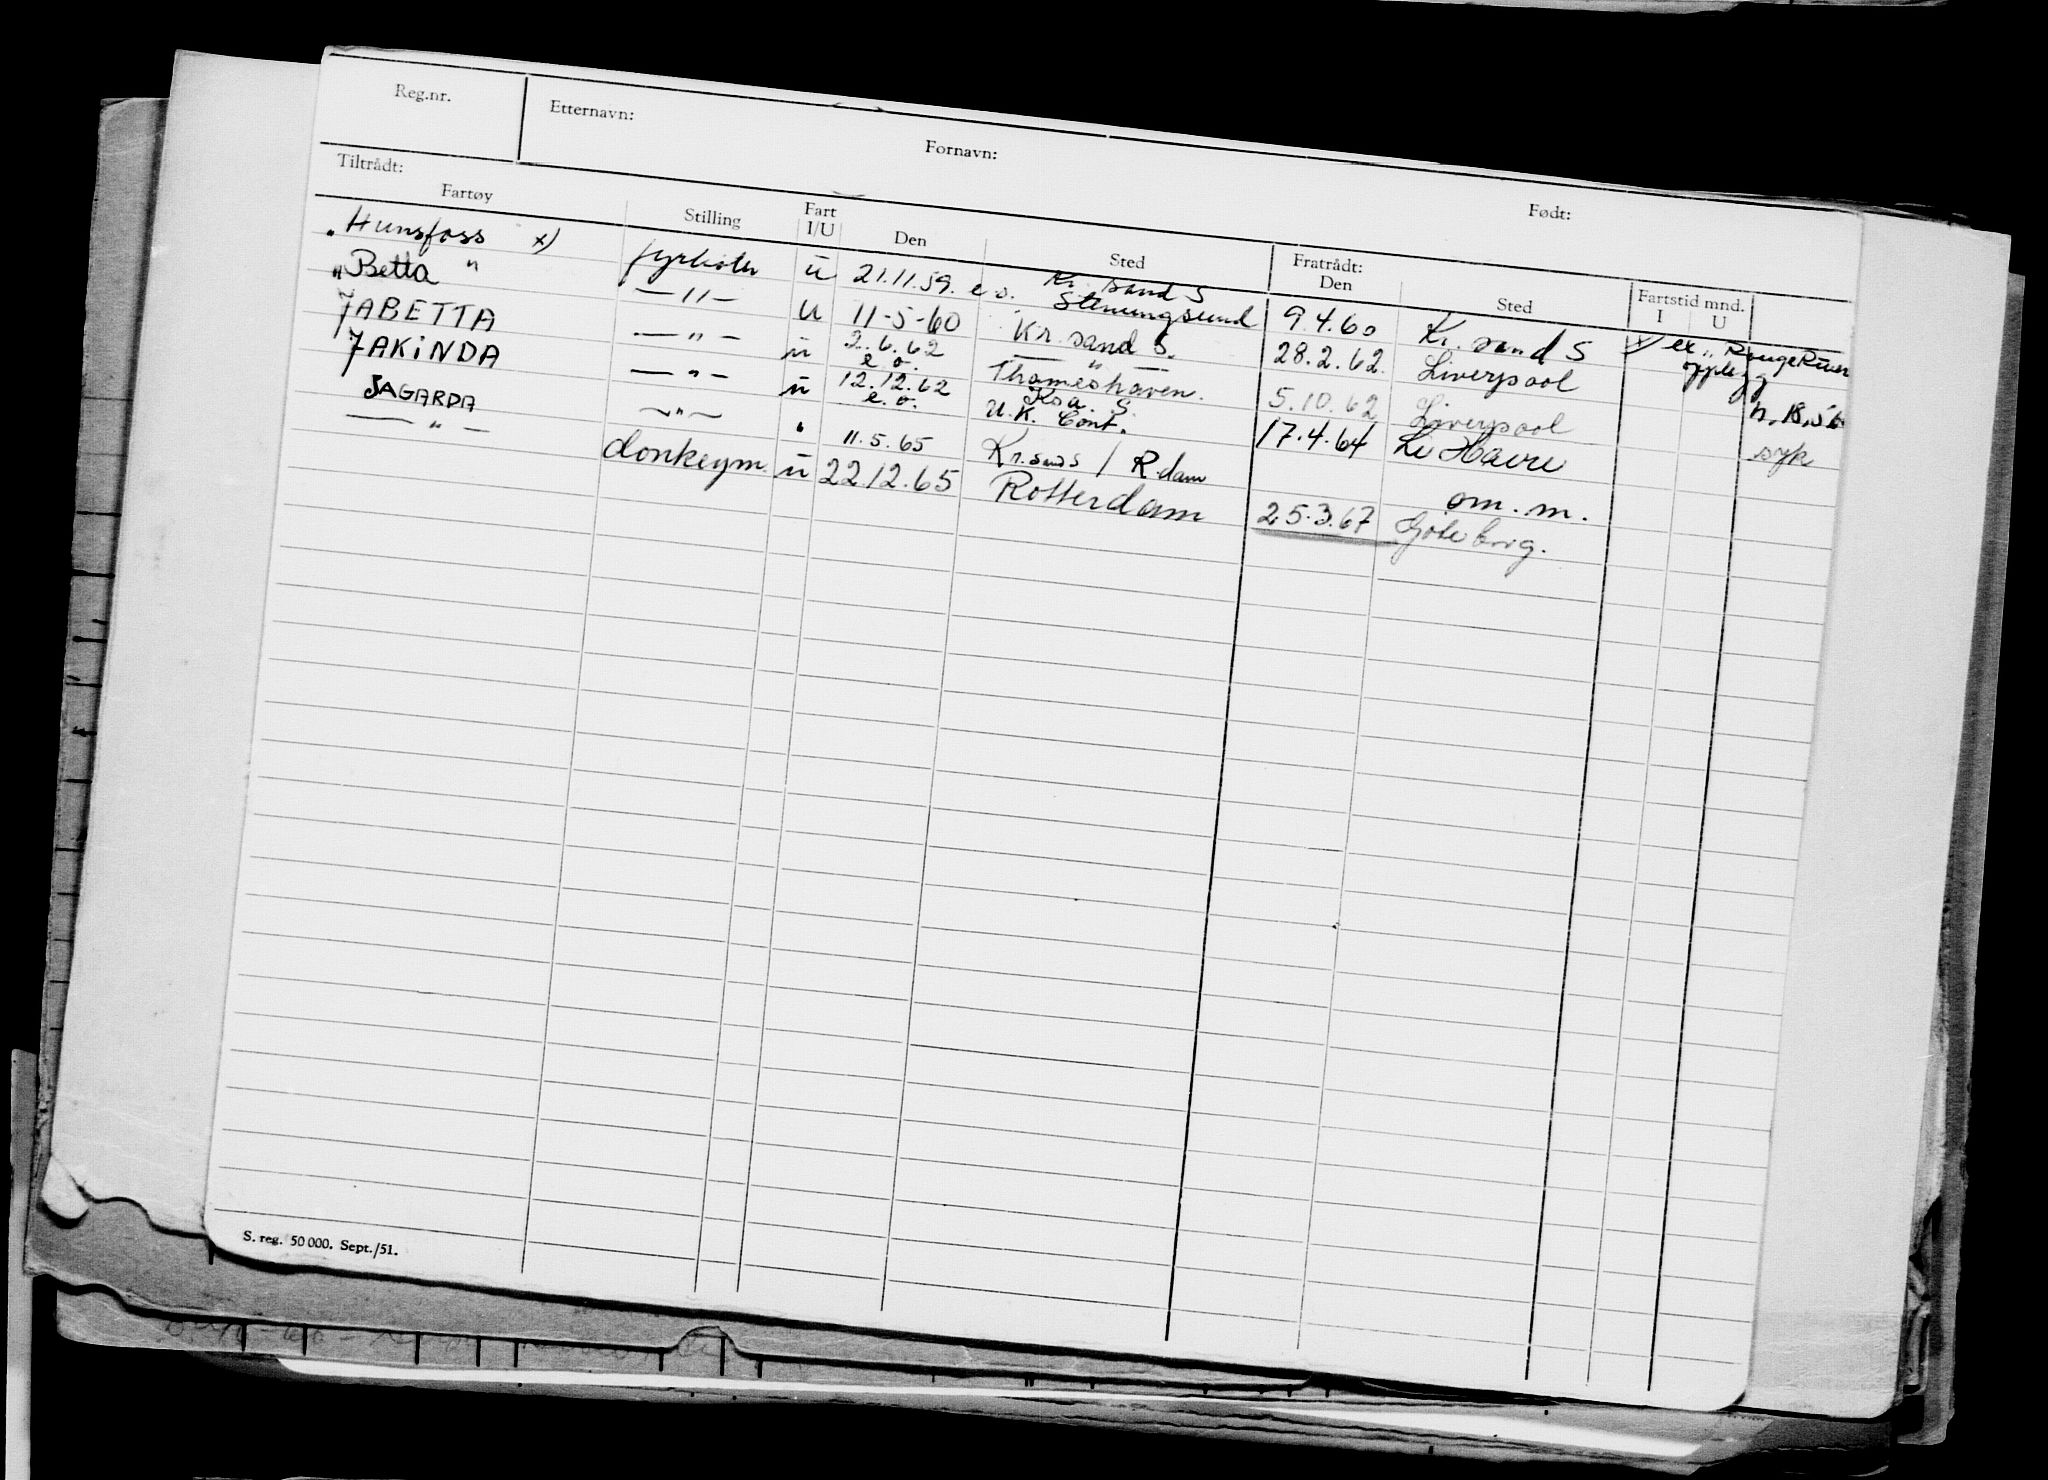 Reg.nr. Etternavn: Fornavn: Født:
Tiltrådt: Fratrådt: Fartstid mnd.
Fartøy Stilling Fart I/U Den Sted Den Sted I U
"Hunsfoss x) fyrbøter u 21.11.59. e.o. Kr. sand S 9.4.60 Kr. sand S x) ex "Rouge River
Stenungsund opplegg
"Betta " —"— U 11-5-60 Kr. sand S. 28.2.62. Liverpool
JABETTA —"— u 2.6.62 —"— 5.10.62 Liverpool h. 18,5 b
e.o. Thameshaven.
JAKINDA —"— u 12.12.62 Ksa. S. 17.4.64 Le Havre syk
e.o. U.K. Cont.
JAGARDA —"— " 11.5.65 Kr.sand S / R.dam om.m.
—"— donkeym. u 22.12.65 Rotterdam 25.3.67 Göteborg.
S. reg. 50 000. Sept./51.